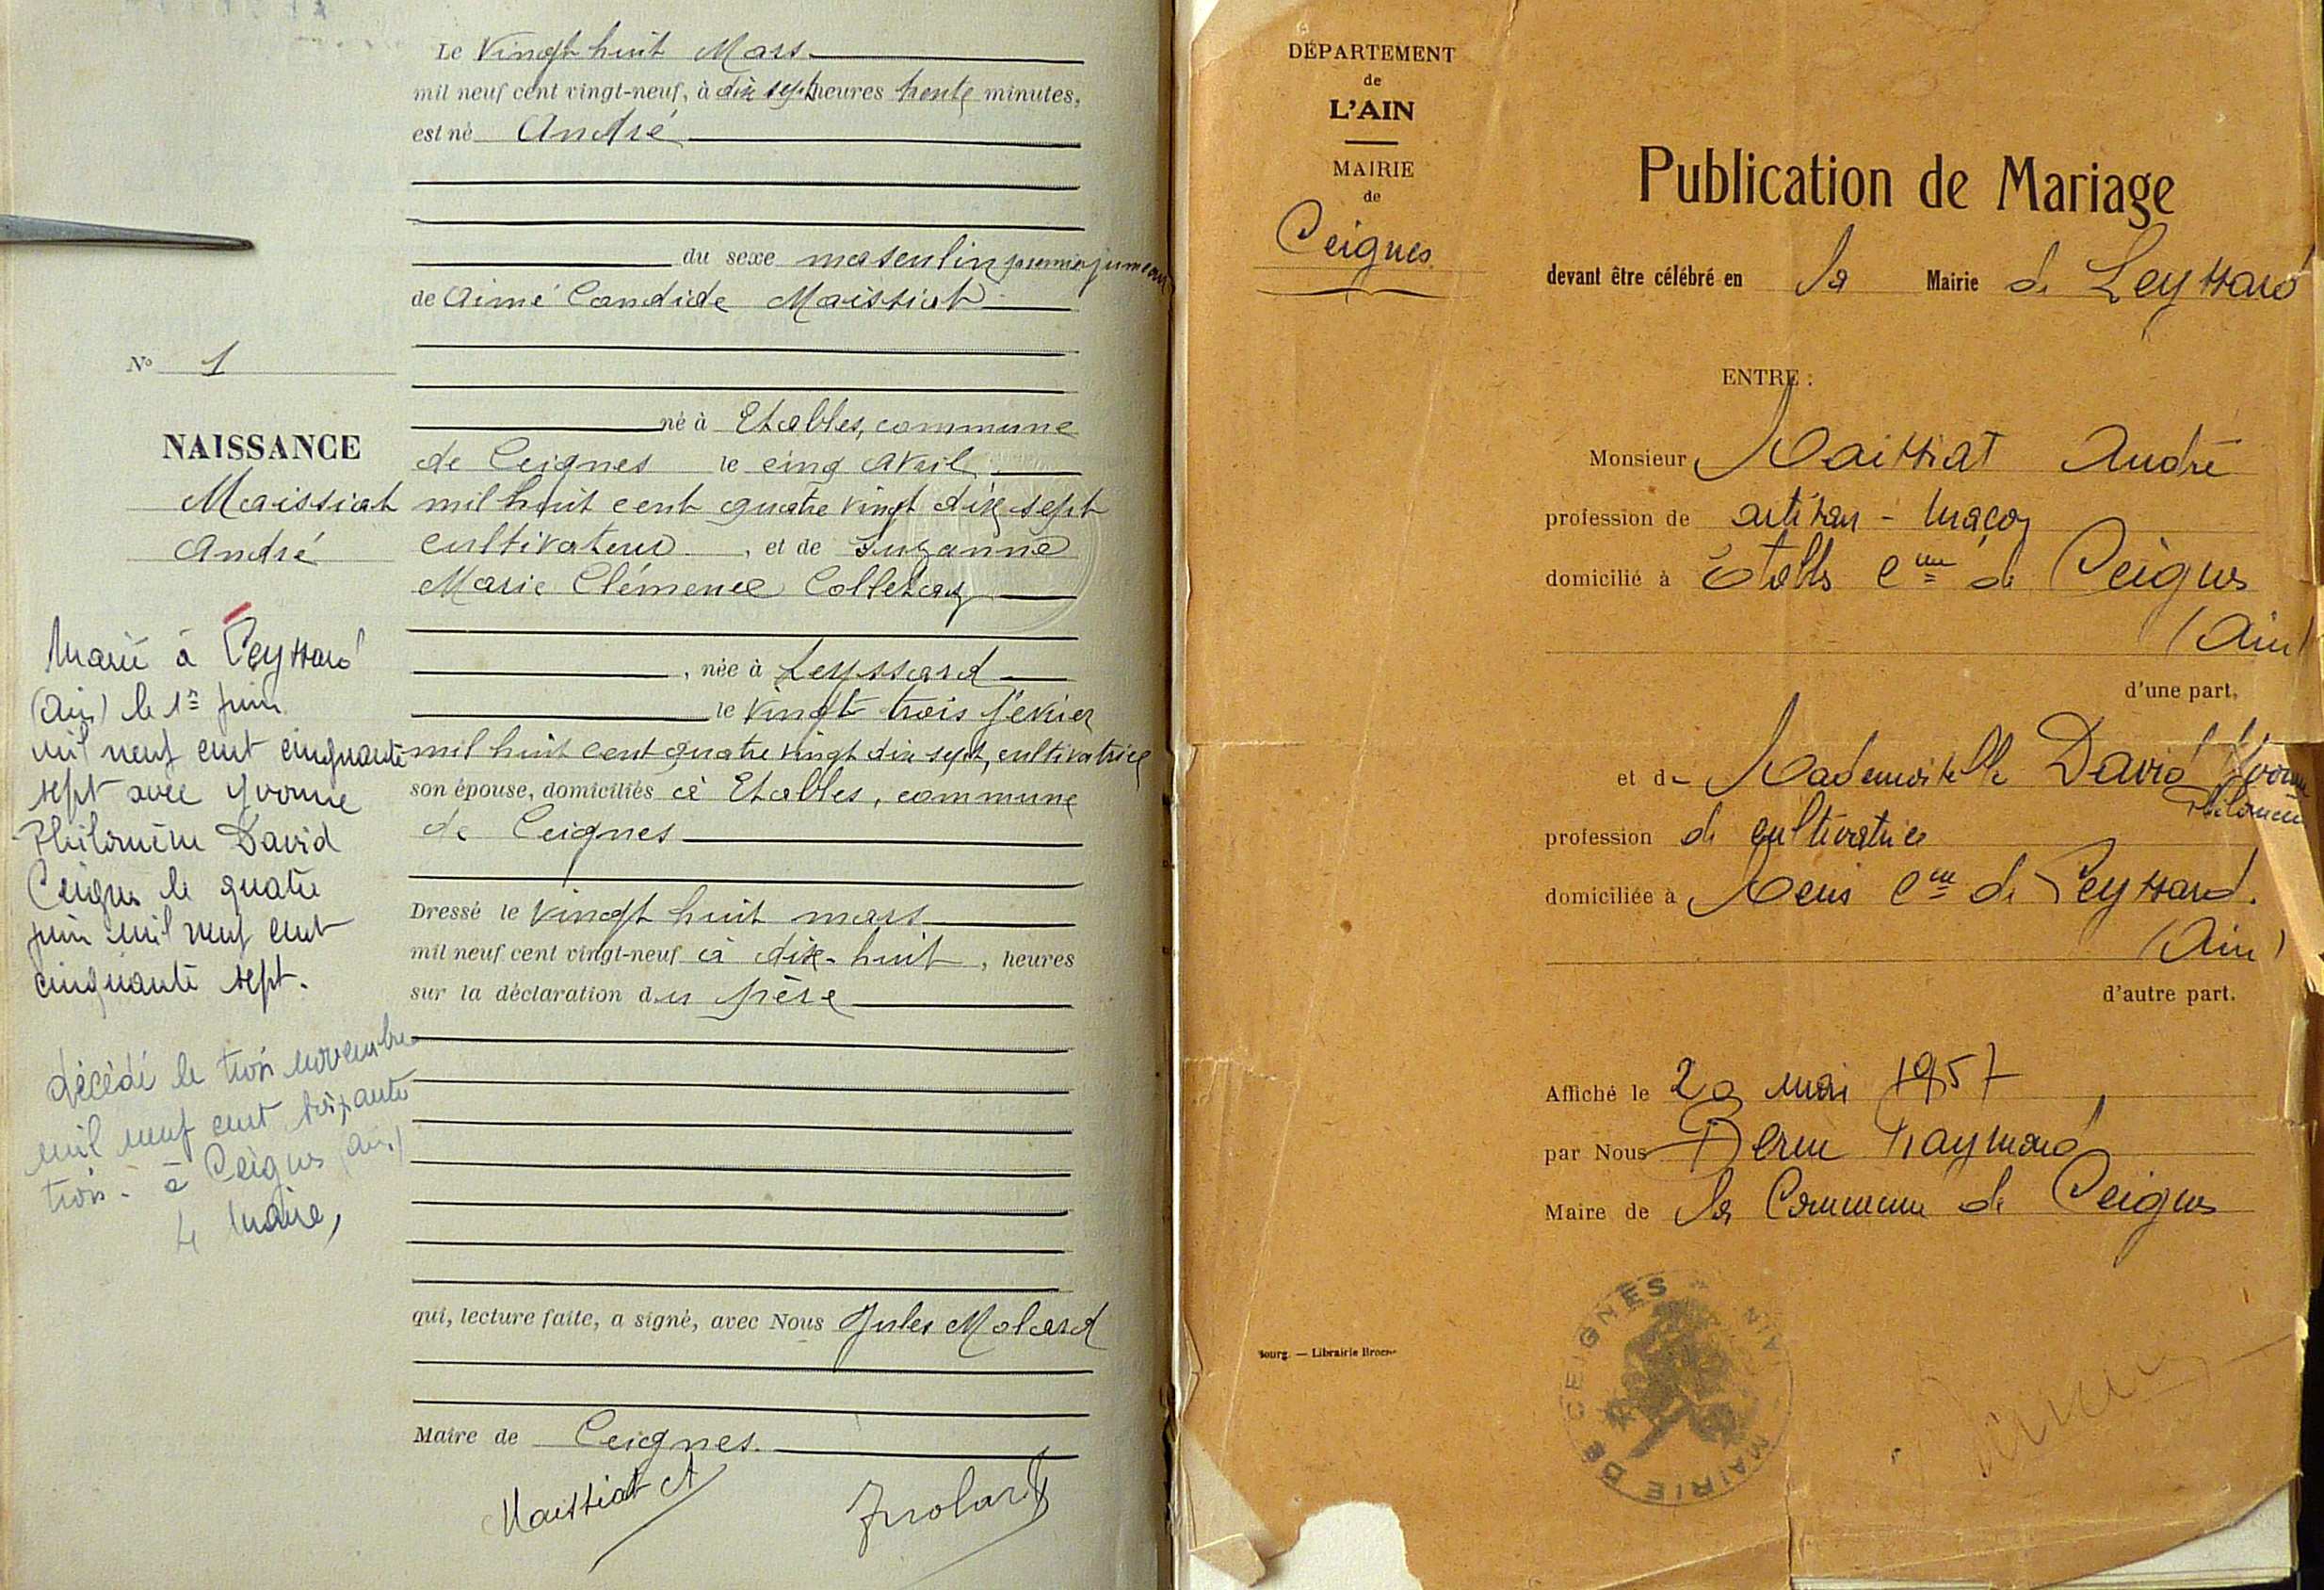 Le Vingt huit Mars
mil neuf cent vingt-neuf, à dix sept heures trente minutes,
est né André
du sexe masculin premier jumeau
de Aimé Candide Maissiat
né à Etables, commune
de Ceignes le cinq Avril
mil huit cent quatre vingt dix sept
cultivateur, et de Suzanne
Marie Clémence Colletaz
, née à Leyssard
le vingt trois février
mil huit cent quatre vingt dix sept, cultivatrice
son épouse, domiciliés à Etables, commune
de Ceignes
Dressé le vingt huit mars
mil neuf cent vingt-neuf à dix-huit, heures
sur la déclaration du père
qui, lecture faite, a signé, avec Nous Jules Molard
Maire de Ceignes.
Maissiat A
JMolard
No 1
NAISSANCE
Maissiat
André
Marié à Leyssard
(Ain) le 1er juin
mil neuf cent cinquante
sept avec Yvonne
Philomène David
Ceignes le quatre
juin mil neuf cent
cinquante sept.
décédé le trois novembre
mil neuf cent soixante
trois - à Ceignes (Ain)
Le Maire,
DÉPARTEMENT
de
L'AIN
MAIRIE
de
Ceignes
Publication de Mariage
devant être célébré en la Mairie de Leyssard
ENTRE :
Monsieur Maissiat André
profession de artisan - maçon
domicilié à Étables Cne de Ceignes
(Ain)
d'une part,
et de Mademoiselle David Yvonne
Philomène
profession de cultivatrice
domiciliée à Cne de Leyssard.
(Ain)
d'autre part.
Affiché le 20 mai 1957
par Nous Raymond
Maire de la Commune de Ceignes
MAIRIE DE CEIGNES AIN
Bourg. — Librairie